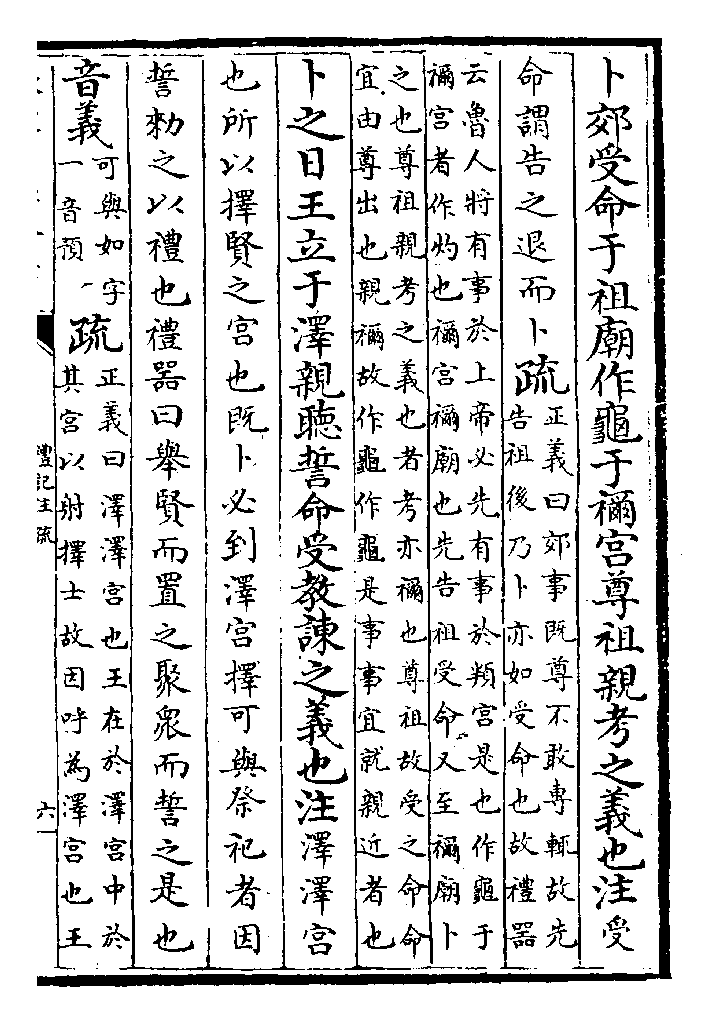 卜郊受命于祖廟作龜于禰宮尊祖親考之義也注受
命謂告之退而卜疏正義曰郊事既尊不敢專輒故先
告祖後乃卜亦如受命也故禮器
云魯人將有事於上帝必先有事於頖宮是也作龜于
禰宮者作灼也禰宮禰廟也先告祖受命又至禰廟卜
之也尊祖親考之義也者考亦禰也尊祖故受之命命
宜由尊出也親禰故作龜作龜是事事宜就親近者也
卜之日王立于澤親聽誓命受教諫之義也注澤澤宮
也所以擇賢之宮也既卜必到澤宮擇可與祭祀者因
誓勑之以禮也禮器曰舉賢而置之聚衆而誓之是也
音義可與如字
一音預
疏正義曰澤澤宮也王在於澤宮中於
其宮以射擇士故因呼為澤宮也王
禮記注疏
六